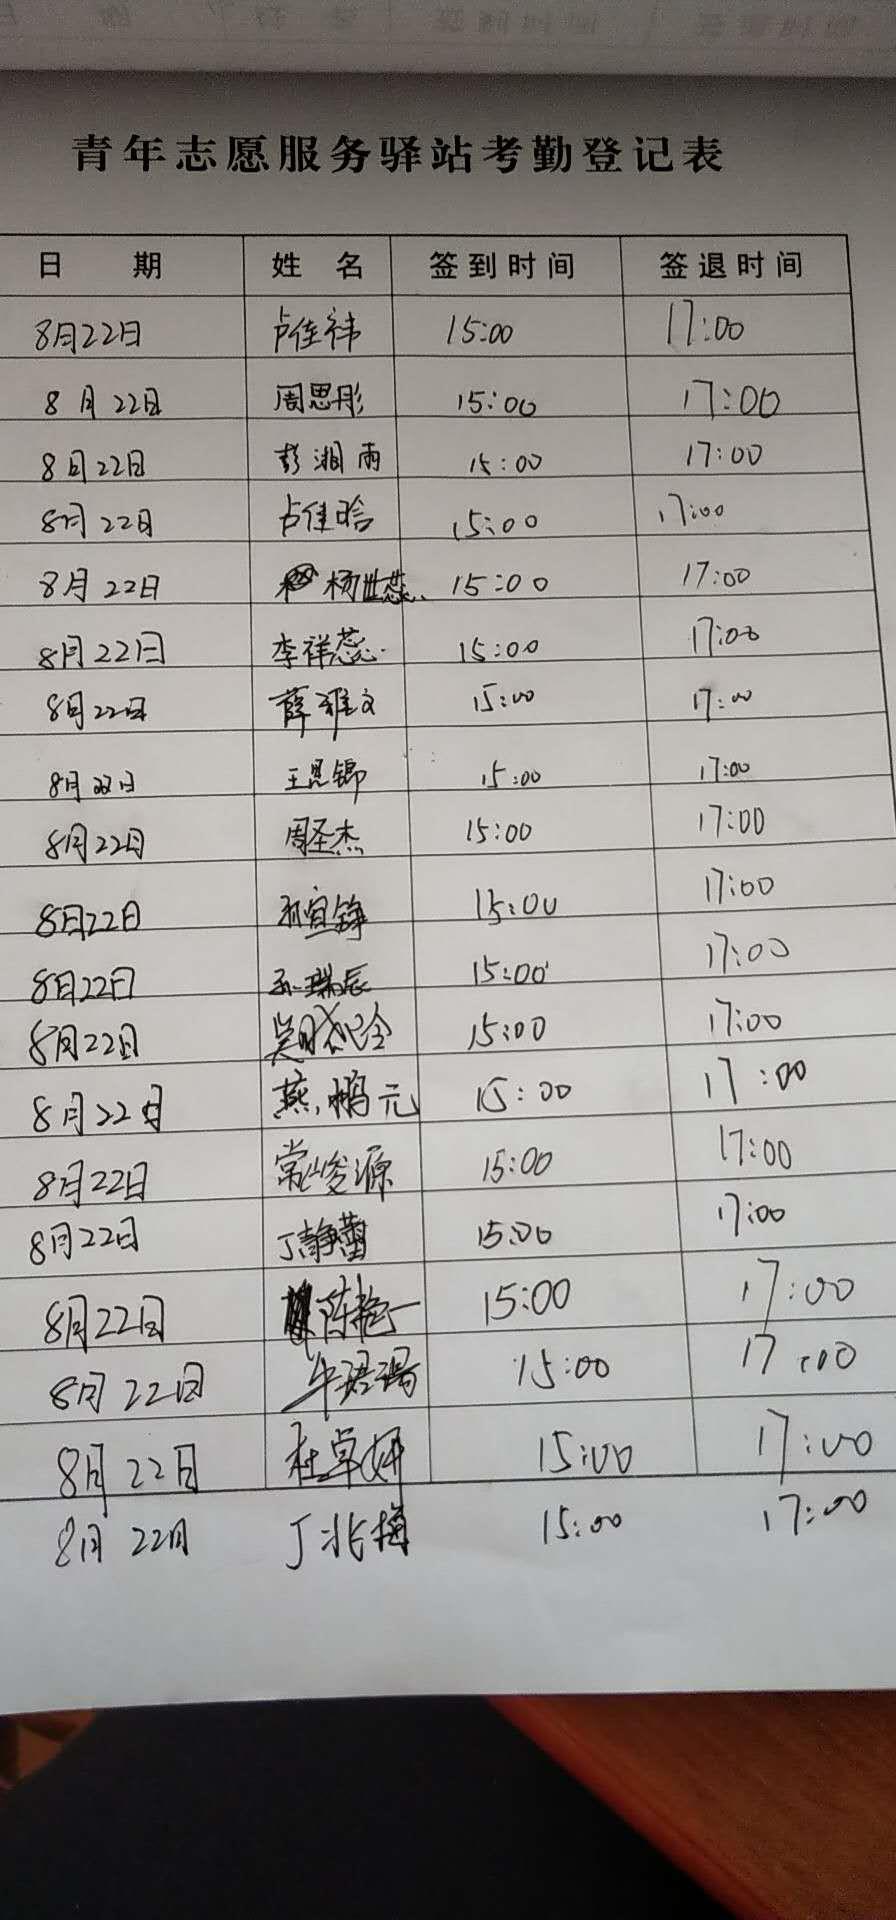 青年志愿服务驿站考勤登记表
日 期 姓 名 签到时间 签退时间
8月22日 卢佳祎 15:00 17:00
8月22日 周思彤 15:00 17:00
8月22日 彭湘雨 15:00 17:00
8月22日 卢佳晗 15:00 17:00
8月22日 杨世蕊 15:00 17:00
8月22日 李祥蕊 15:00 17:00
8月22日 薛雅文 15:00 17:00
8月22日 王思锦 15:00 17:00
8月22日 周圣杰 15:00 17:00
8月22日 宜铮 15:00 17:00
8月22日 孙瑞辰 15:00 17:00
8月22日 吴 15:00 17:00
8月22日 燕鹏元 15:00 17:00
8月22日 常峻源 15:00 17:00
8月22日 丁静蕾 15:00 17:00
8月22日 陈艳一 15:00 17:00
8月22日 牛珺 15:00 17:00
8月22日 杜卓妍 15:00 17:00
8月22日 丁兆梅 15:00 17:00